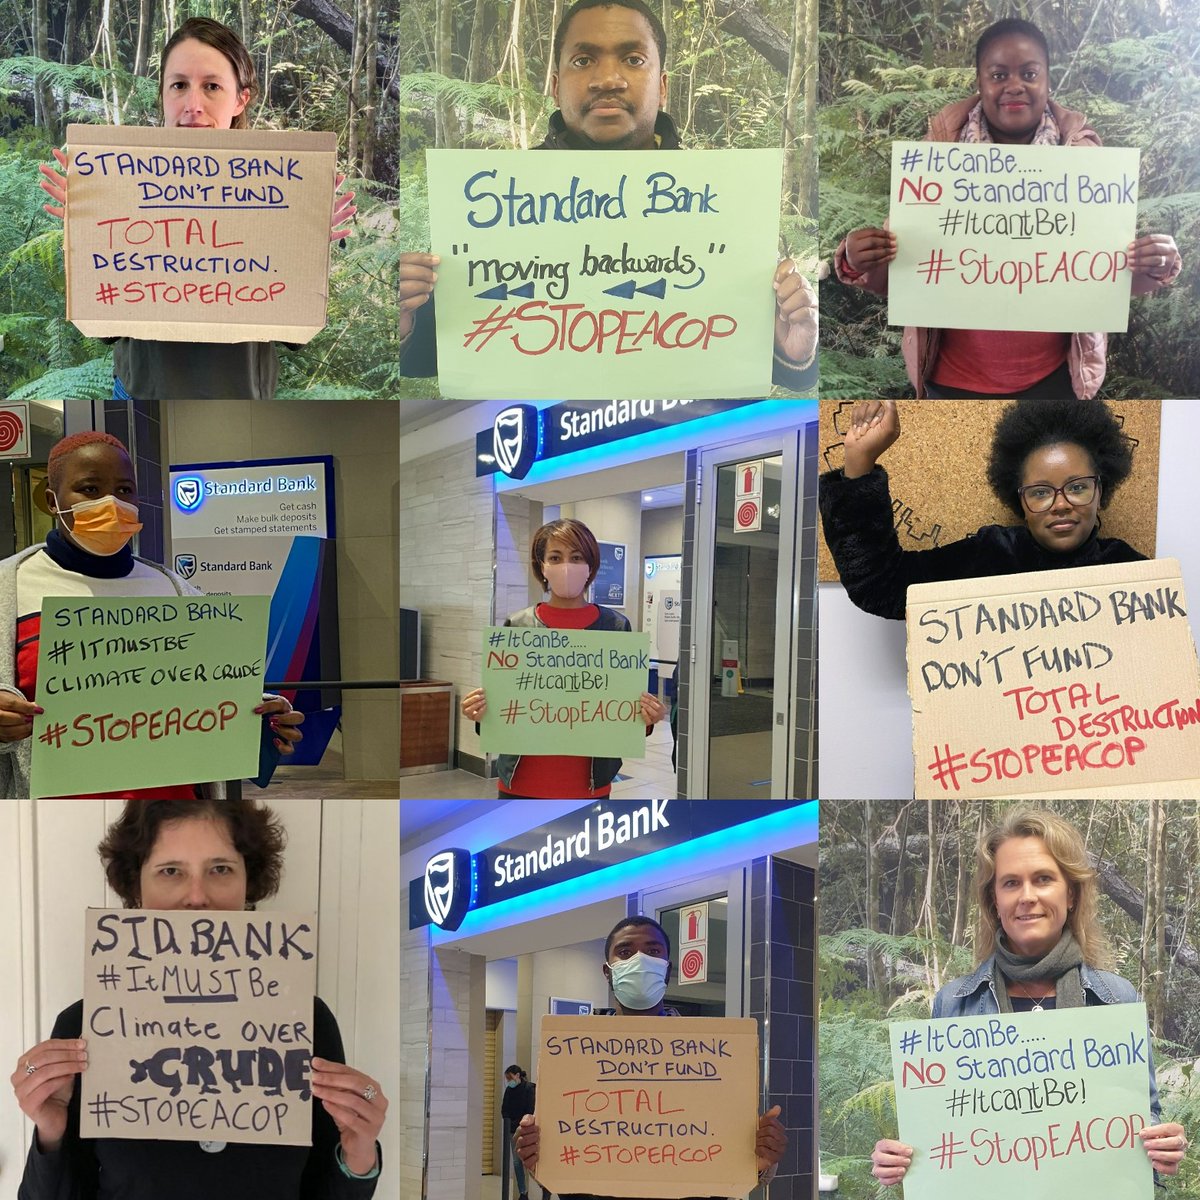 STANDARD BANK
DON'T FUND
TOTAL
DESTRUCTION.
#STOPEACOP
Standard Bank
"moving backwards,"
#STOPEACOP
#ItCanBe.....
NO Standard Bank
#ItcantBe!
#StopEACOP
Standard Bank
Get cash
Make bulk deposits
Get stamped statements
Standard Bank
deposits
STANDARD BANK
#ITMUSTBE
CLIMATE OVER CRUDE
#STOPEACOP
Standard
#ItCanBe.....
NO Standard Bank
#ItcantBe!
#StopEACOP
STANDARD BANK
DON'T FUND
TOTAL
DESTRUCTION
#STOPEACOP
STD. BANK
#ItMUSTBe
Climate OVER
CRUDE
#STOPEACOP
Standard Bank
STANDARD BANK
DON'T FUND
TOTAL
DESTRUCTION.
#STOPEACOP
#ItCanBe.....
NO Standard Bank
#ItcantBe!
#StopEACOP